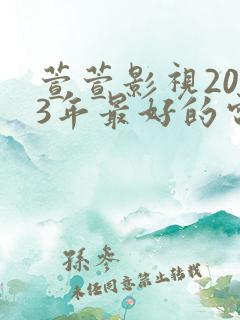 萱萱影視20
3年最好的
孫參
未任同意禁止转载